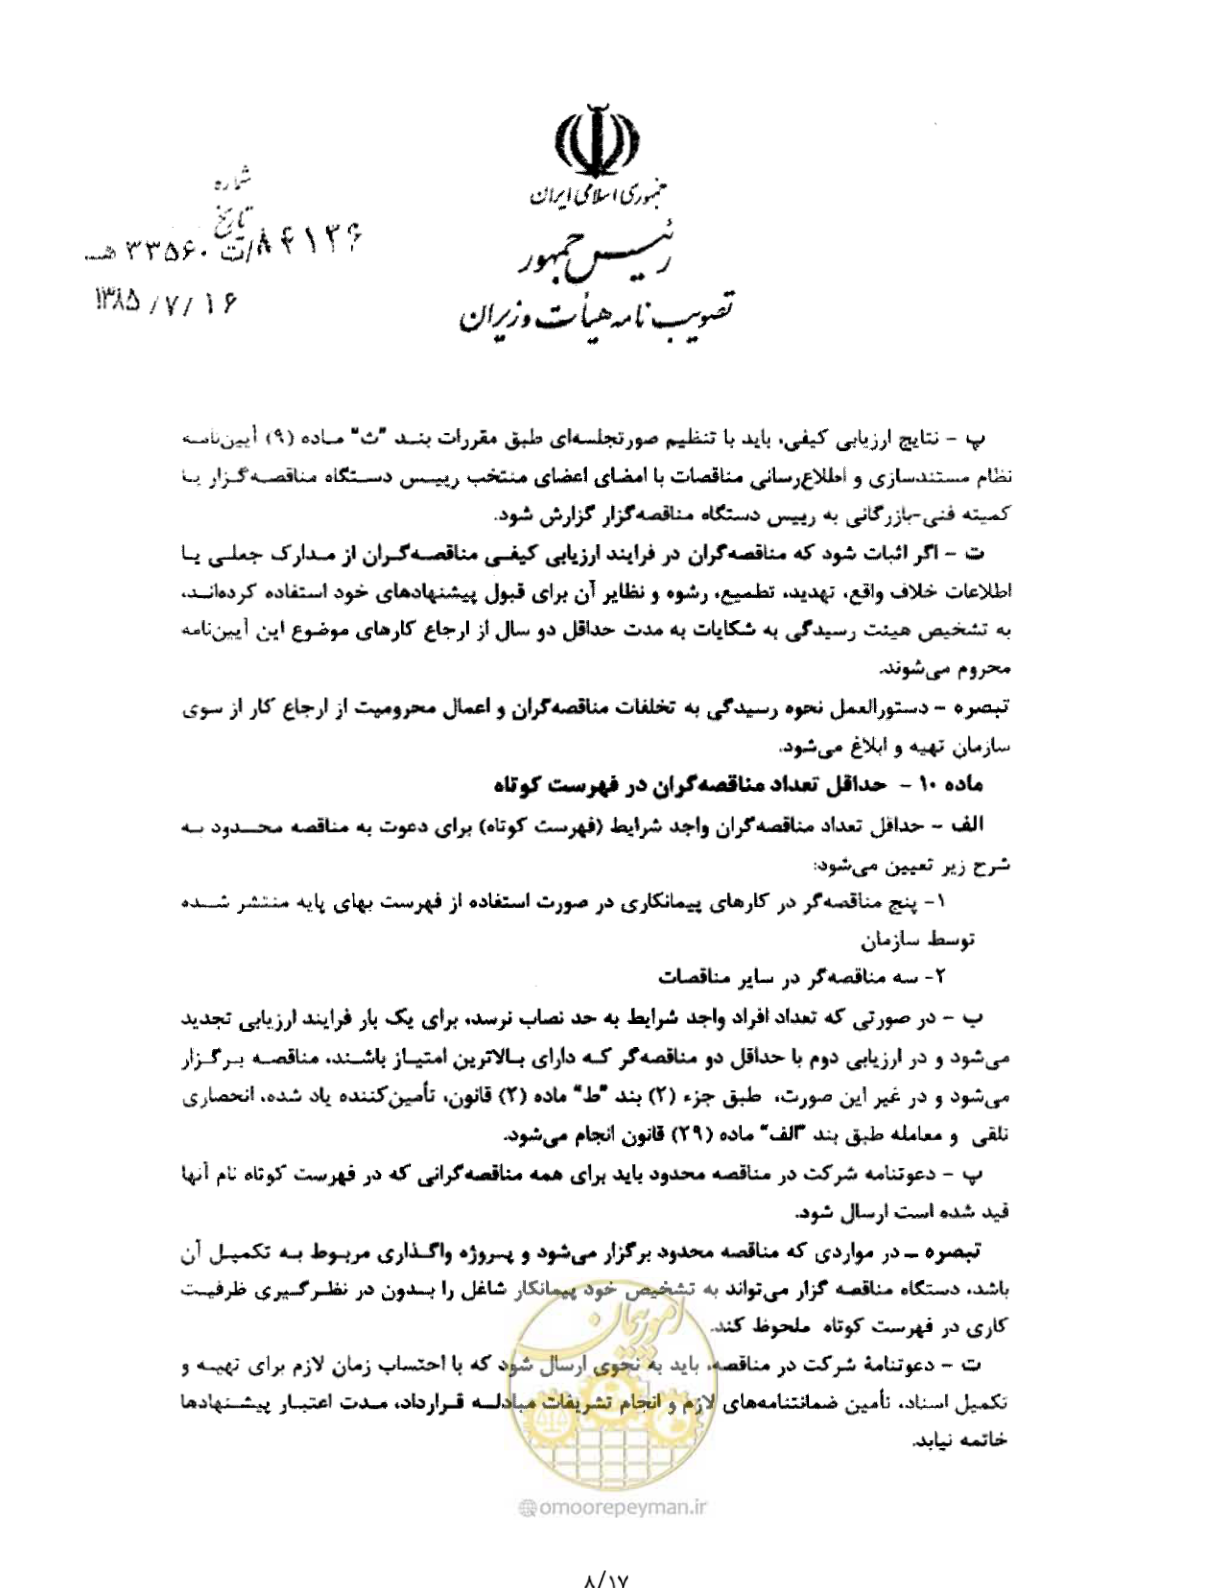 جمهوری اسلامی ایران
رئیس جمهور
تصویب نامه هیأت وزیران
شماره
تاریخ
۸۴۱۳۶/ت ۳۳۵۶۰ هـ
۱۳۸۵/۷/۱۶
پ - نتایج ارزیابی کیفی، باید با تنظیم صورتجلسه‌ای طبق مقررات بند "ث" ماده (۹) آیین‌نامه
نظام مستندسازی و اطلاع‌رسانی مناقصات با امضای اعضای منتخب رییس دستگاه مناقصه‌گزار یا
کمیته فنی-بازرگانی به رییس دستگاه مناقصه‌گزار گزارش شود.
ت - اگر اثبات شود که مناقصه‌گران در فرایند ارزیابی کیفی مناقصه‌گران از مدارک جعلی یا
اطلاعات خلاف واقع، تهدید، تطمیع، رشوه و نظایر آن برای قبول پیشنهادهای خود استفاده کرده‌اند،
به تشخیص هیئت رسیدگی به شکایات به مدت حداقل دو سال از ارجاع کارهای موضوع این آیین‌نامه
محروم می‌شوند.
تبصره - دستورالعمل نحوه رسیدگی به تخلفات مناقصه‌گران و اعمال محرومیت از ارجاع کار از سوی
سازمان تهیه و ابلاغ می‌شود.
ماده ۱۰ - حداقل تعداد مناقصه‌گران در فهرست کوتاه
الف - حداقل تعداد مناقصه‌گران واجد شرایط (فهرست کوتاه) برای دعوت به مناقصه محدود به
شرح زیر تعیین می‌شود:
۱- پنج مناقصه‌گر در کارهای پیمانکاری در صورت استفاده از فهرست بهای پایه منتشر شده
توسط سازمان
۲- سه مناقصه‌گر در سایر مناقصات
ب - در صورتی که تعداد افراد واجد شرایط به حد نصاب نرسد، برای یک بار فرایند ارزیابی تجدید
می‌شود و در ارزیابی دوم با حداقل دو مناقصه‌گر که دارای بالاترین امتیاز باشند، مناقصه برگزار
می‌شود و در غیر این صورت، طبق جزء (۲) بند "ط" ماده (۲) قانون، تأمین‌کننده یاد شده، انحصاری
تلقی و معامله طبق بند "الف" ماده (۲۹) قانون انجام می‌شود.
پ - دعوتنامه شرکت در مناقصه محدود باید برای همه مناقصه‌گرانی که در فهرست کوتاه نام آنها
قید شده است ارسال شود.
تبصره - در مواردی که مناقصه محدود برگزار می‌شود و پروژه واگذاری مربوط به تکمیل آن
باشد، دستگاه مناقصه گزار می‌تواند به تشخیص خود پیمانکار شاغل را بدون در نظرگیری ظرفیت
کاری در فهرست کوتاه ملحوظ کند.
ت - دعوتنامۀ شرکت در مناقصه، باید به نحوی ارسال شود که با احتساب زمان لازم برای تهیه و
تکمیل اسناد، تأمین ضمانتنامه‌های لازم و انجام تشریفات مبادله قرارداد، مدت اعتبار پیشنهادها
خاتمه نیابد.
امور پیمان
omoorepeyman.ir
۸/۱۷